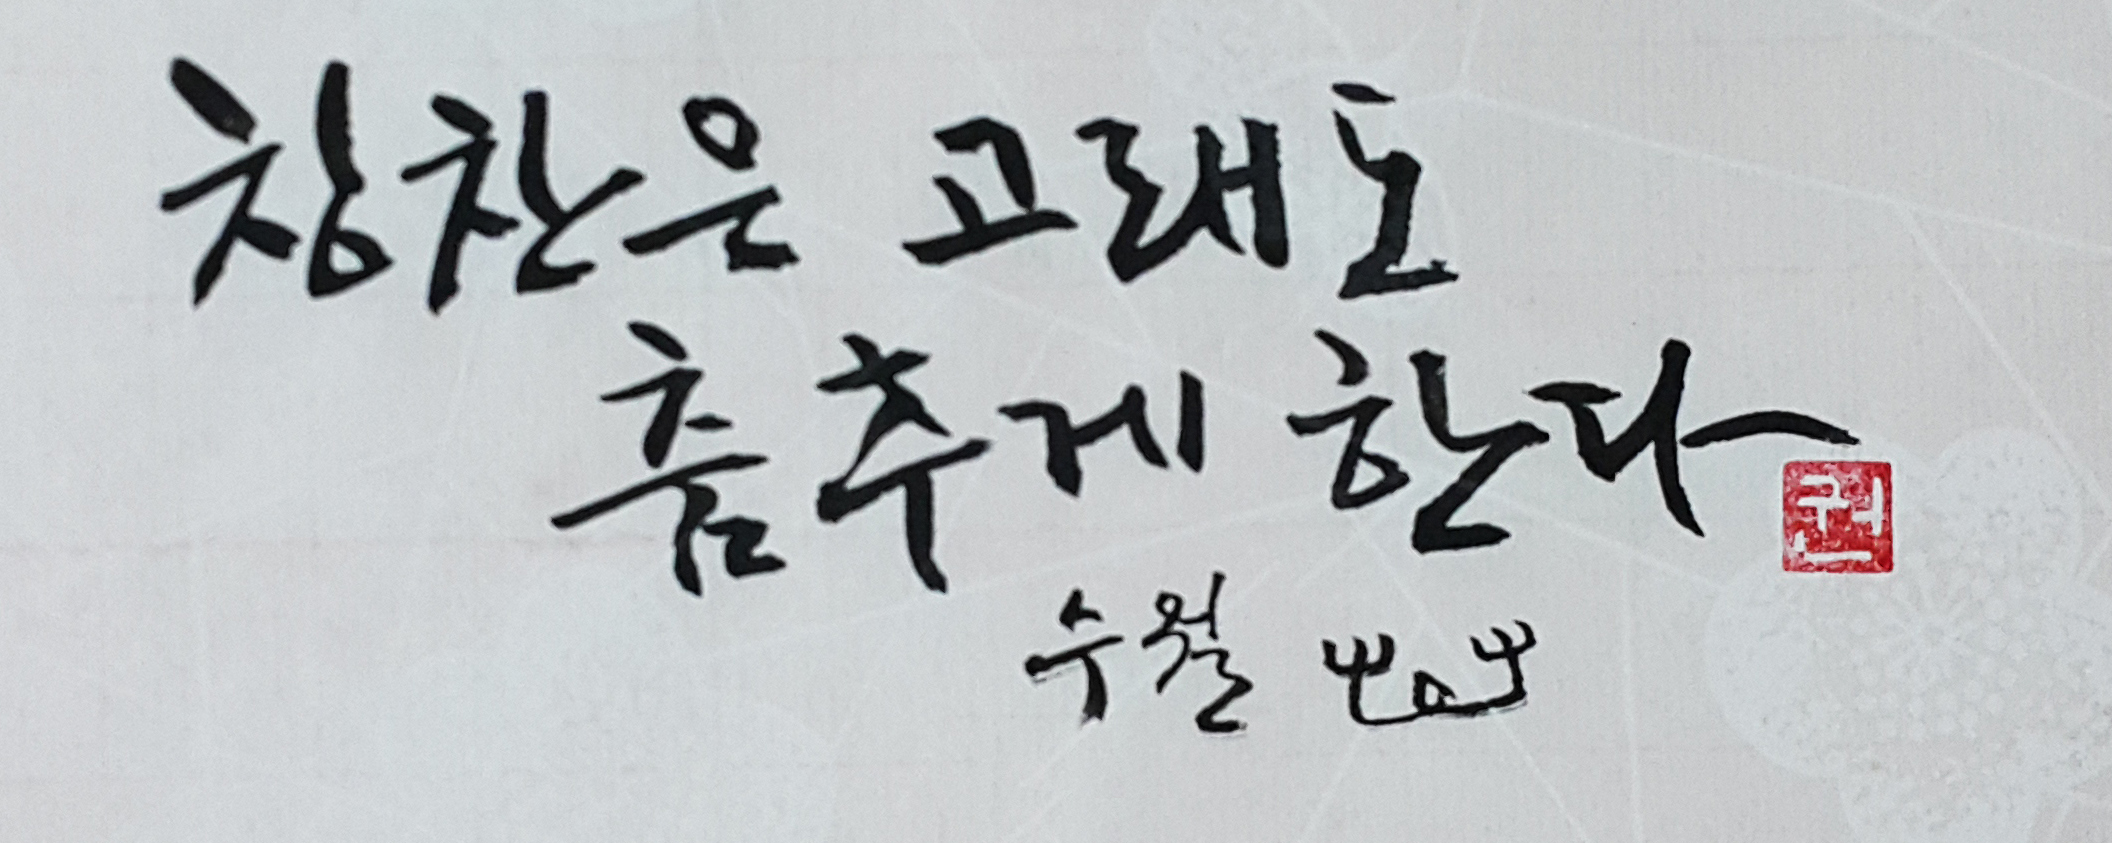 칭찬은 고래도
춤추게 한다
권
수월